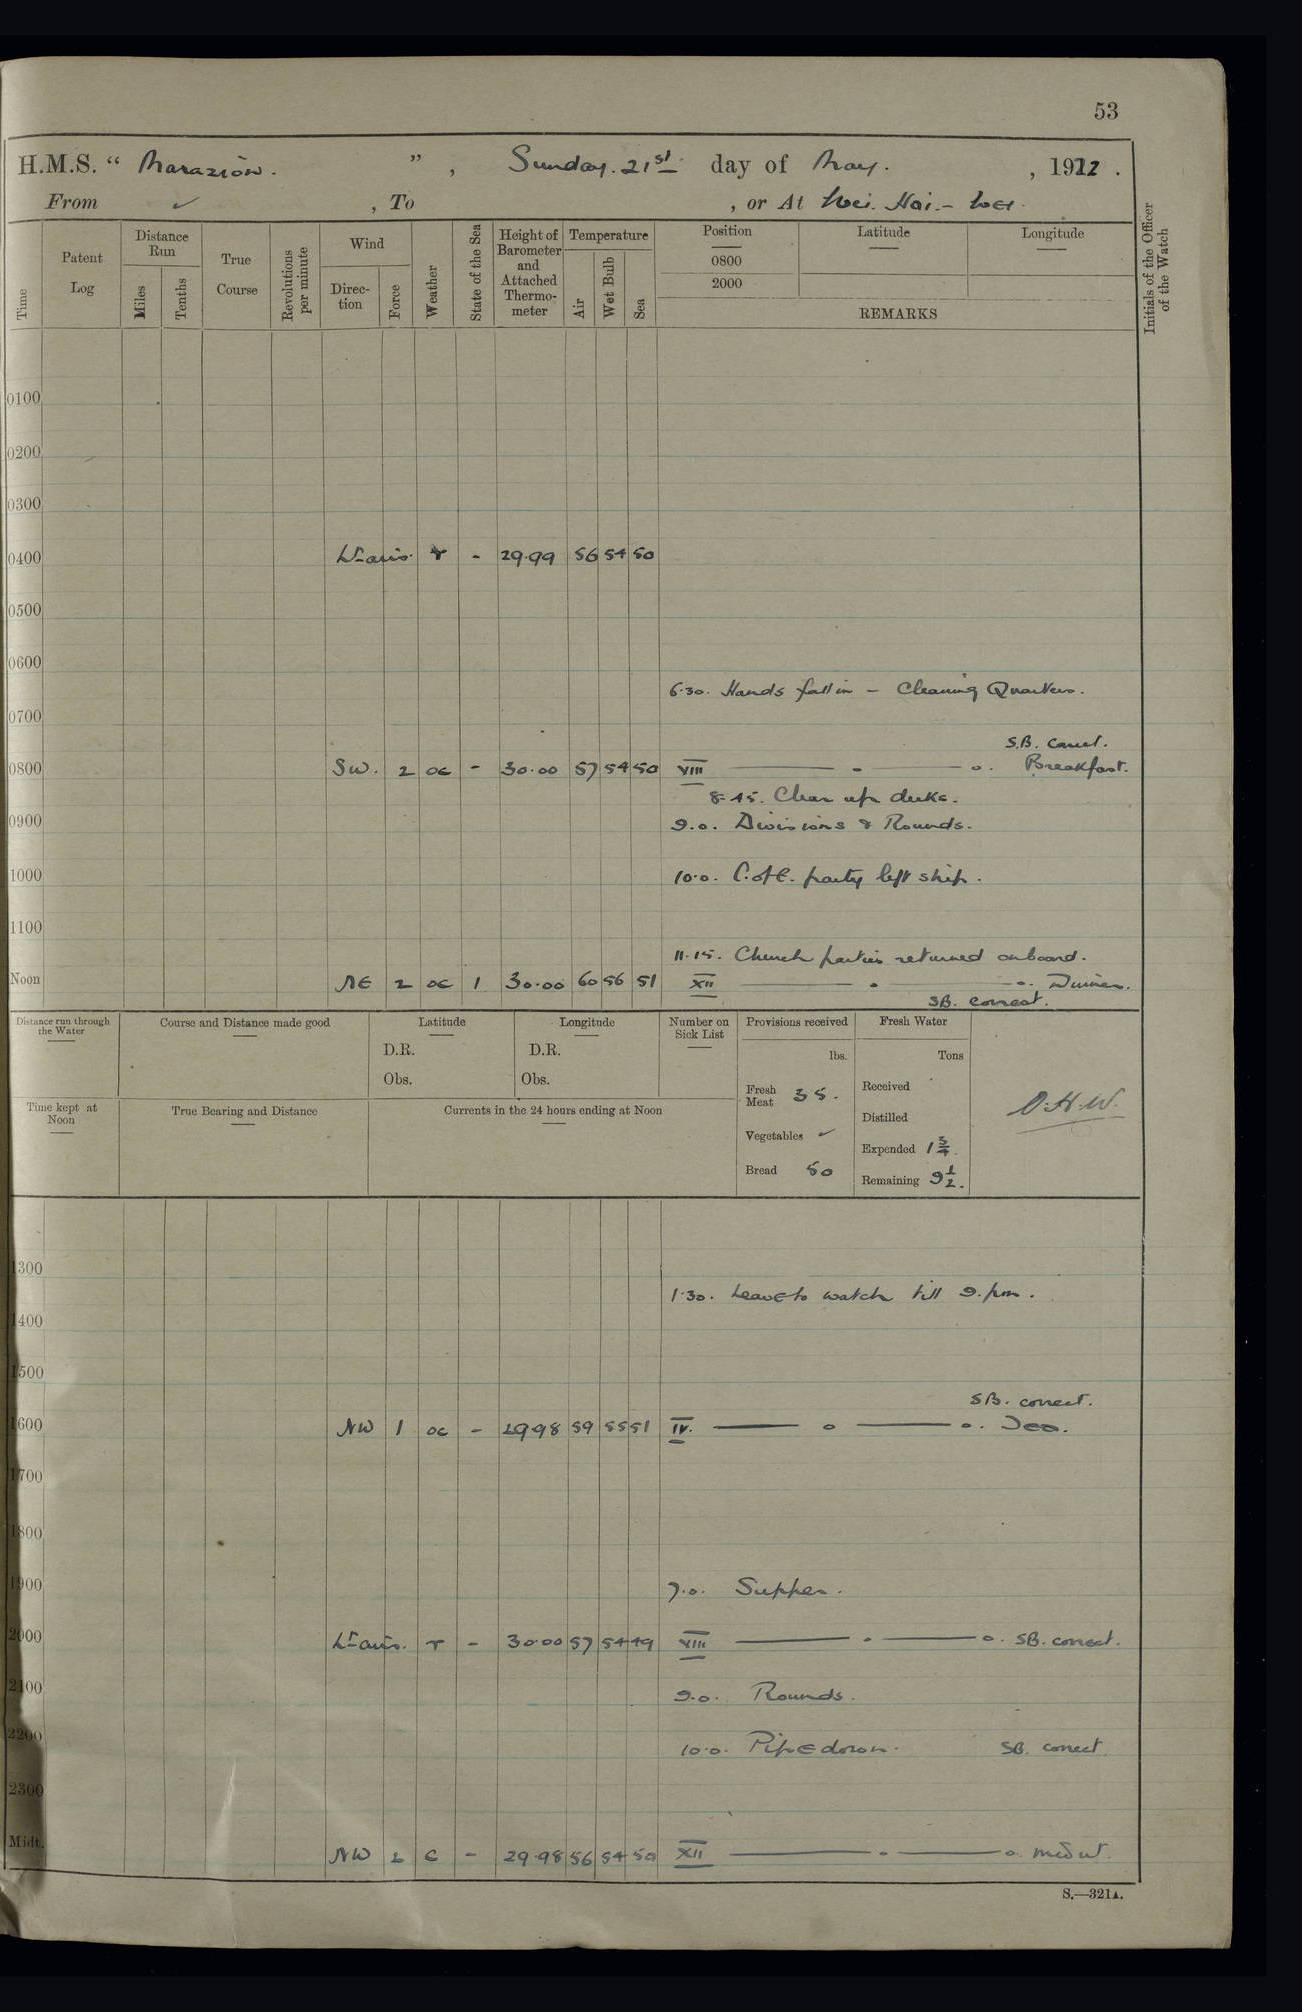 53
H.M.S. “ Marazion. ” , Sunday. 21st day of May. , 1922 .
From ✓ , To , or At Wei. Hai. - Wei.
Time
Patent Log
Distance Run
Miles
Tenths
True Course
Revolutions per minute
Wind
Direc- tion
Force
Weather
State of the Sea
Height of Barometer and Attached Thermo- meter
Temperature
Air
Wet Bulb
Sea
Position
0800
2000
Latitude
Longitude
REMARKS
Initials of the Officer of the Watch
0100
0200
0300
0400 Lt airs. r - 29.99 56 54 50
0500
0600
6.30. Hands fall in - Cleaning Quarters.
0700
S.B. correct.
0800 SW. 2 oc - 30.00 57 54 50 VIII — o — o. Breakfast.
8.45. Clear up decks.
0900 9.0. Divisions & Rounds.
1000 10.0. C. of E. party left ship.
1100
11.15. Church parties returned onboard.
Noon NE 2 oc 1 30.00 60 56 51 XII — o — o. Dinner.
SB. correct.
Distance run through the Water
Course and Distance made good
Latitude
D.R.
Obs.
Longitude
D.R.
Obs.
Number on Sick List
Provisions received
lbs.
Fresh Meat 35.
Vegetables ✓
Bread 50
Fresh Water
Tons
Received
Distilled
Expended 1 3/4.
Remaining 9 1/2.
O.H.W.
Time kept at Noon
True Bearing and Distance
Currents in the 24 hours ending at Noon
1300
1.30. Leave to watch till 9. pm.
1400
1500
SB. correct.
1600 NW 1 oc - 29.98 59 55 51 IV. — o — o. Tea.
1700
1800
1900 7.0. Supper.
2000 Lt airs. r - 30.00 57 54 49 VIII — o — o. SB. correct.
2100 9.0. Rounds.
2200 10.0. Pipe down. SB. correct
2300
Midt. NW 2 c - 29.98 56 54 50 XII — o — o.
S.—321A.